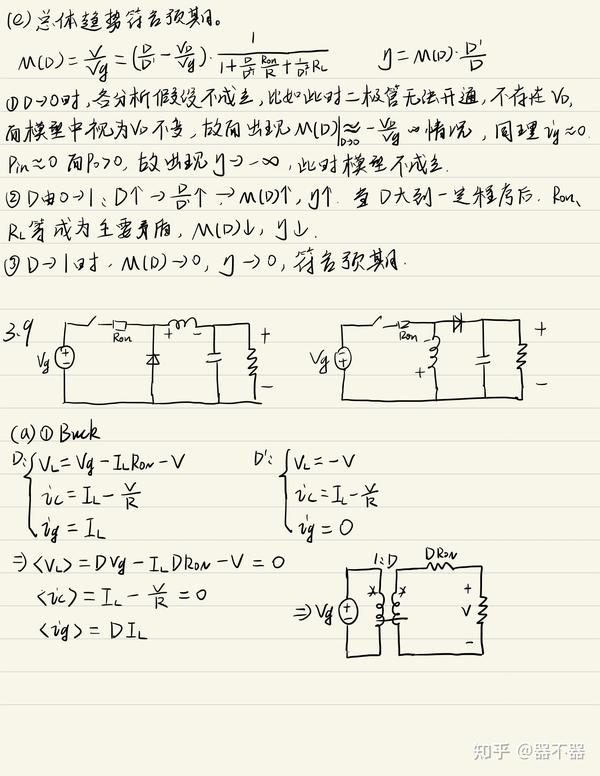 (e) 总体趋势符合预期。
M(D) = V/Vg = (D/D' - VD/Vg) · 1/(1 + D/D'² Ron/R + 1/D'² RL) η = M(D) · D'/D
① D→0时, 各分析假设不成立, 比如此时二极管无法开通, 不存在VD,
而模型中视为VD不变, 故而出现M(D)|D→0 ≈ -VD/Vg 情况, 同理ig≈0.
Pin≈0 而Po>0, 故出现η→-∞, 此时模型不成立.
② D由0→1: D↑ → D/D'↑ → M(D)↑, η↑. 当D大到一定程度后. Ron、
RL等成为主要矛盾, M(D)↓, η↓.
③ D→1时, M(D)→0, η→0, 符合预期.
3.9
Vg Ron + - + -
Vg Ron - + + -
(a) ① Buck
D: { VL = Vg - ILRon - V D': { VL = -V
ic = IL - V/R ic = IL - V/R
ig = IL ig = 0
⇒ <VL> = DVg - ILDRon - V = 0
<ic> = IL - V/R = 0
<ig> = DIL
⇒ Vg 1:D DRon + V -
知乎 @器不器